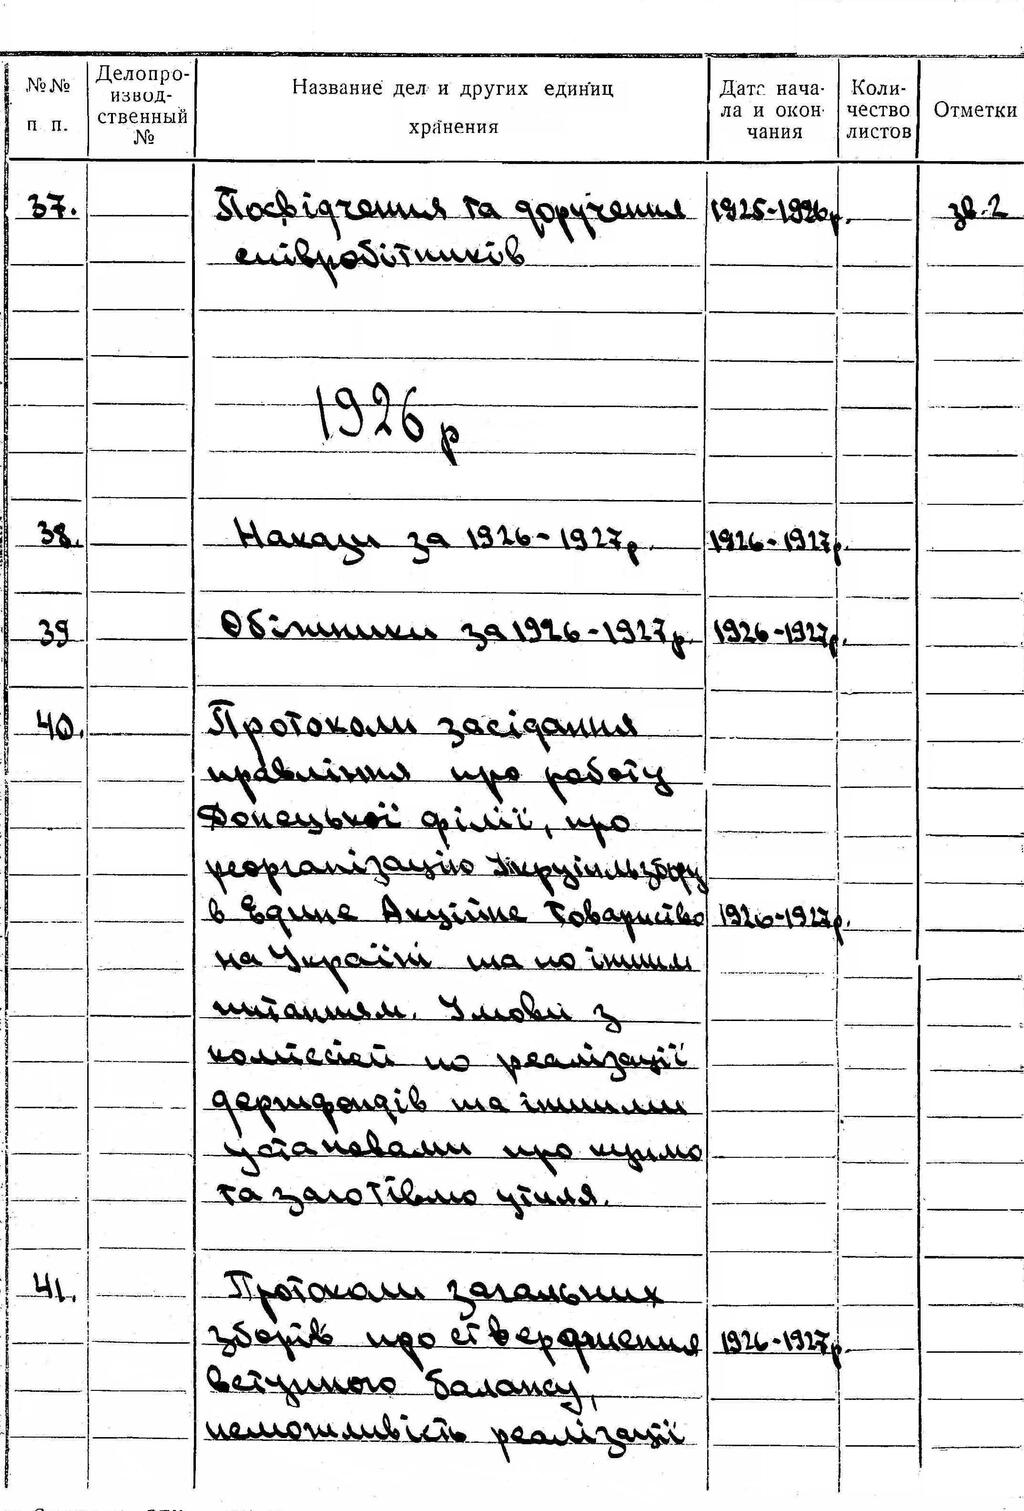 №№ п п.
Делопроизвод-ственный №
Название дел и других единиц хранения
Дата нача-ла и окон-чания
Коли-чество листов
Отметки
37. Посвідчення та доручення 1925-1926р. зв.2
співробітників
1926р
38. Накази за 1926-1927р. 1926-1927р.
39 Обіжники за 1926-1927р. 1926-1927р.
40. Протоколи засідання
правління про роботу
Донецької філії, про
реорганізацію Укрутильзбору
в Едине Акційне Товариство 1926-1927р.
на Україні та по іншим
питанням. Умови з
комісією по реалізації
держфондів та іншими
установами про купмо
та заготівмо утиля.
41. Протоколи загальних
зборів про ствердження 1926-1927р.
вступного балансу,
неможливість реалізації